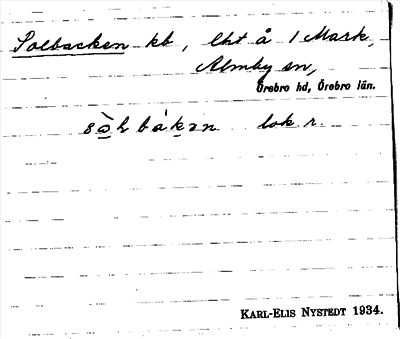 Solbacken kb, lht å 1 Mark,
Almby sn,
Örebro hd, Örebro län.
sò̠lbák̠ən lok r.
KARL-ELIS NYSTEDT 1934.